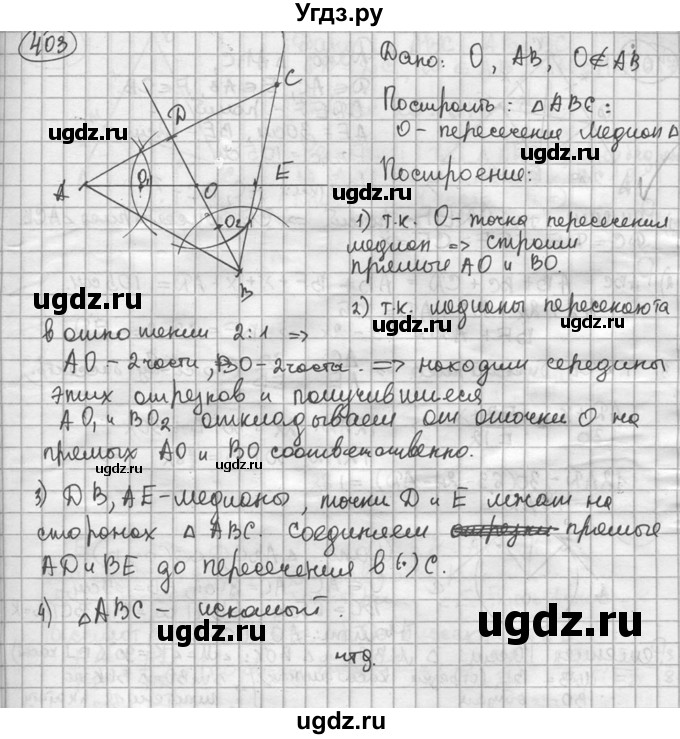 Угдз.ру
403
Дано: O, AB, O∉AB
Построить: △ABC:
O - пересечение медиан △
Построение:
1) т.к. O - точка пересечения
медиан => строим
прямые AO и BO.
2) т.к. медианы пересекаются
в отношении 2:1 =>
AO - 2 части, BO - 2 части. => находим середины
этих отрезков и получившиеся
AO₁ и BO₂ откладываем от точки O на
прямых AO и BO соответственно.
3) DB, AE - медианы, точки D и E лежат на
сторонах △ABC. Соединяем прямые
AD и BE до пересечения в (·) C.
4) △ABC - искомый.
чтд.
A
B
C
D
E
O
O₁
O₂
ugdz.ru
ugdz.ru
ugdz.ru
ugdz.ru
ugdz.ru
ugdz.ru
ugdz.ru
ugdz.ru
ugdz.ru
ugdz.ru
ugdz.ru
ugdz.ru